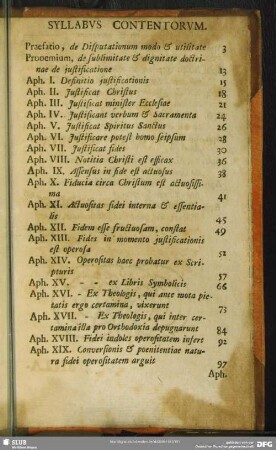 SYLLABVS CONTENTORVM.
Praefatio, de Disputationum modo & utilitate 3
Prooemium, de sublimitate & dignitate doctri-
nae de justificatione 13
Aph. I. Definitio justificationis 15
Aph. II. Justificat Christus 18
Aph. III. Justificat minister Ecclesiae 21
Aph. IV. Justificant verbum & Sacramenta 24
Aph. V. Justificat Spiritus Sanctus 26
Aph. VI. Justificare potest homo seipsum 28
Aph. VII. Justificat fides 30
Aph. VIII. Notitia Christi est efficax 36
Aph. IX. Assensus in fide est actuosus 38
Aph. X. Fiducia circa Christum est actuosissi-
ma 41
Aph. XI. Actuositas fidei interna & essentia-
lis 45
Aph. XII. Fidem esse fructuosam, constat 49
Aph. XIII. Fides in momento justificationis
est operosa 52
Aph. XIV. Operositas haec probatur ex Scri-
pturis 57
Aph. XV. - - ex Libris Symbolicis 66
Aph. XVI. - Ex Theologis, qui ante mota pie-
tatis ergo certamina, vixerunt 73
Aph. XVII. - Ex Theologis, qui inter cer-
tamina illa pro Orthodoxia depugnarunt 84
Aph. XVIII. Fidei indoles operositatem infert 92
Aph. XIX. Conversionis & poenitentiae natu-
ra fidei operositatem arguit 97
Aph.
SLUB
DFG